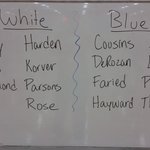 White Blue
Harden Cousins
Korver DeRozan
Parsons Faried
Rose Hayward